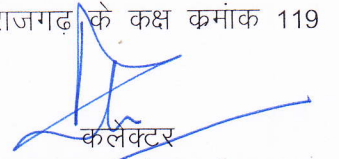 राजगढ़ के कक्ष क्रमांक 119
कलेक्टर